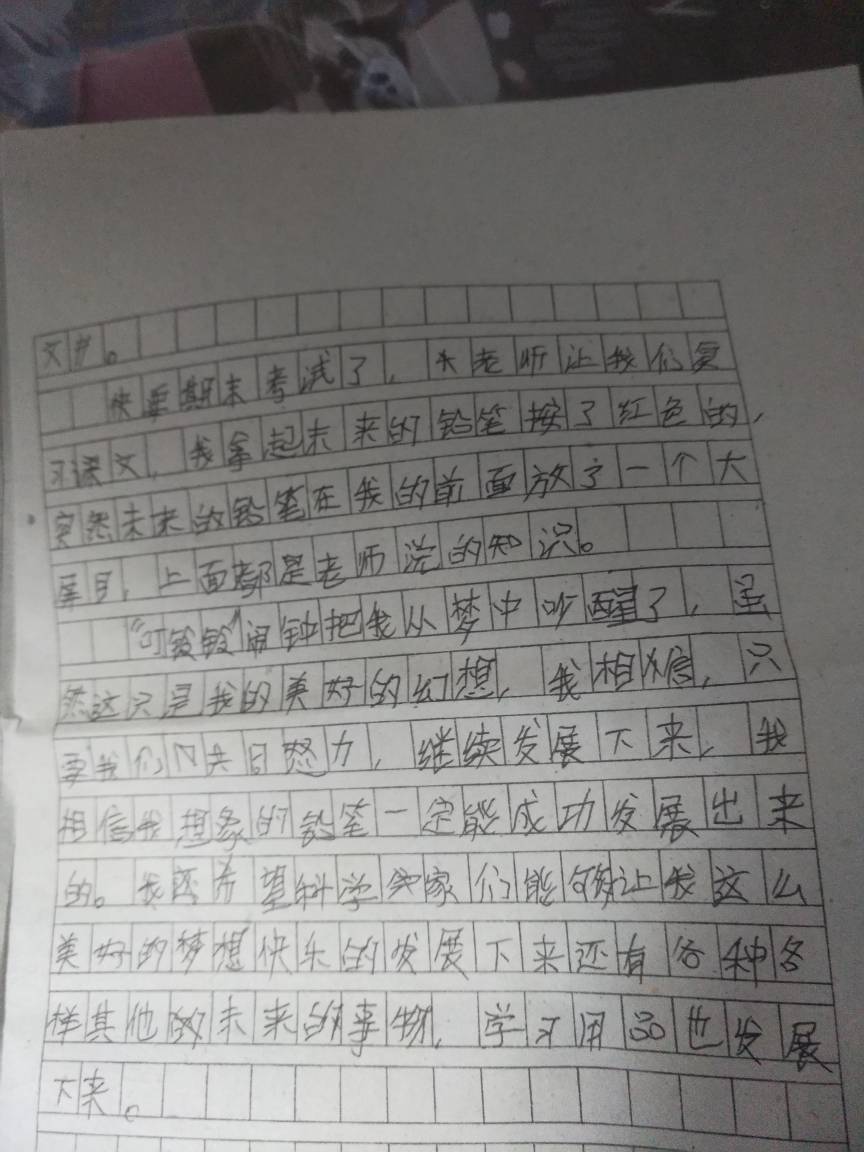 文护。
快要期末考减了，大老师让我们复
习课文，我拿起未来的铅笔按了红色的，
突然未来的铅笔在我的前面放了一个大
屏目，上面都是老师说的知识。
“叮铃铃”闹钟把我从梦中吵醒了，虽
然这只是我的美好的幻想，我相信，只
要我们共同怒力，继续发展下来，我
相信我想象的铅笔一定能成功发展出来
的。我还希望科学家们能够让我这么
美好的梦想快乐的发展下来还有各种各
样其他的未来的事物，学习用品也发展
下来。